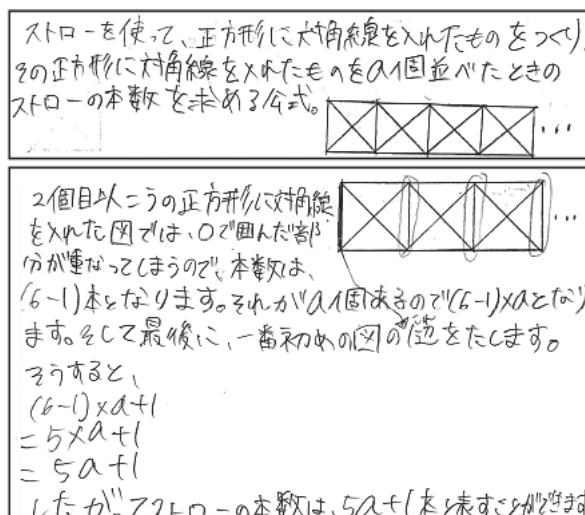 ストローを使って、正方形に対角線を入れたものをつくり、
その正方形に対角線を入れたものをa個並べたときの
ストローの本数を求める公式。
...
2個目以こうの正方形に対角線
を入れた図では、○で囲んだ部
分が重なってしまうので、本数は、
(6-1)本となります。それがa個あるので(6-1)×aとなり
ます。そして最後に、一番初めの図の辺をたします。
...
そうすると、
(6-1)×a+1
=5×a+1
=5a+1
したがってストローの本数は、5a+1本と表すことができます